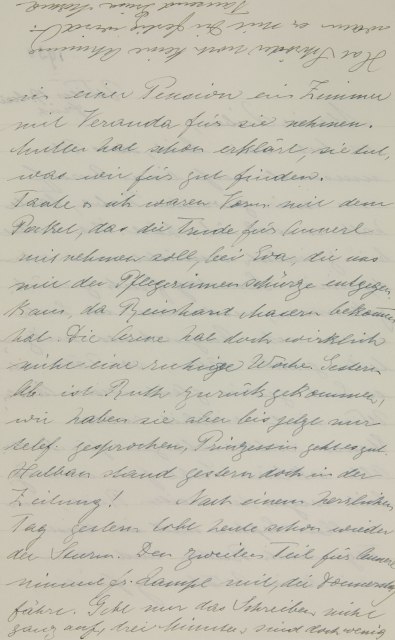 in einer Pension ein Zimmer
mit Veranda für sie nehmen.
Mutter hat schon erklärt, sie tut,
was wir für gut finden.
Tante u. ich waren Vorm. mit dem
Paket, das die Trude für Annerl
mitnehmen soll, bei Eva, die uns
mit der Pflegerinnenschürze entgegen
kam, da Reinhard Masern bekommen
hat. Die Arme hat doch wirklich
nicht eine ruhige Woche. Gestern
Ab. ist Ruth zurückgekommen,
wir haben sie aber bis jetzt nur
telef. gesprochen, Prinzessin geht es gut.
Halban stand gestern doch in der
Zeitung! Nach einem herrlichen
Tag gestern tobt heute schon wieder
der Sturm. Den zweiten Teil für Annerl
nimmt Fr. Lampl mit, die Donnerstag
fährt. Gebt nur das Schreiben nicht
ganz auf, drei Minuten sind doch wenig
Hat noch keine Ahnung
wann er mit fertig wird?
Tausend